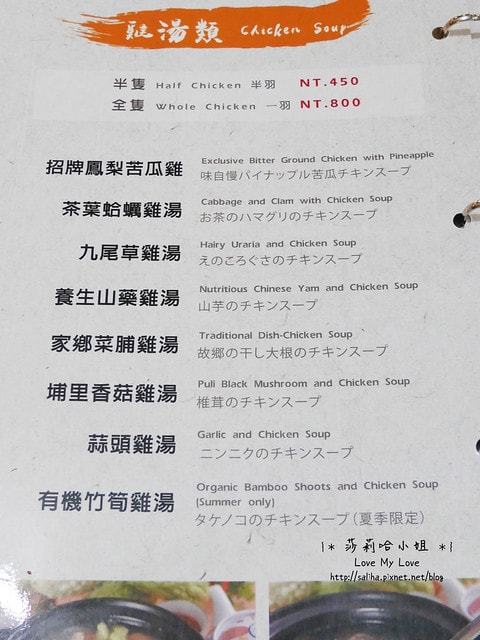 雞湯類 Chicken Soup
半隻 Half Chicken 半羽 NT.450
全隻 Whole Chicken 一羽 NT.800
招牌鳳梨苦瓜雞
Exclusive Bitter Ground Chicken with Pineapple
味自慢パイナップル苦瓜チキンスープ
茶葉蛤蠣雞湯
Cabbage and Clam with Chicken Soup
お茶のハマグリのチキンスープ
九尾草雞湯
Hairy Uraria and Chicken Soup
えのころぐさのチキンスープ
養生山藥雞湯
Nutritious Chinese Yam and Chicken Soup
山芋のチキンスープ
家鄉菜脯雞湯
Traditional Dish-Chicken Soup
故郷の干し大根のチキンスープ
埔里香菇雞湯
Puli Black Mushroom and Chicken Soup
椎茸のチキンスープ
蒜頭雞湯
Garlic and Chicken Soup
ニンニクのチキンスープ
有機竹筍雞湯
Organic Bamboo Shoots and Chicken Soup
(Summer only)
タケノコのチキンスープ(夏季限定)
|* 莎莉哈小姐 *|
Love My Love
http://saliha.pixnet.net/blog